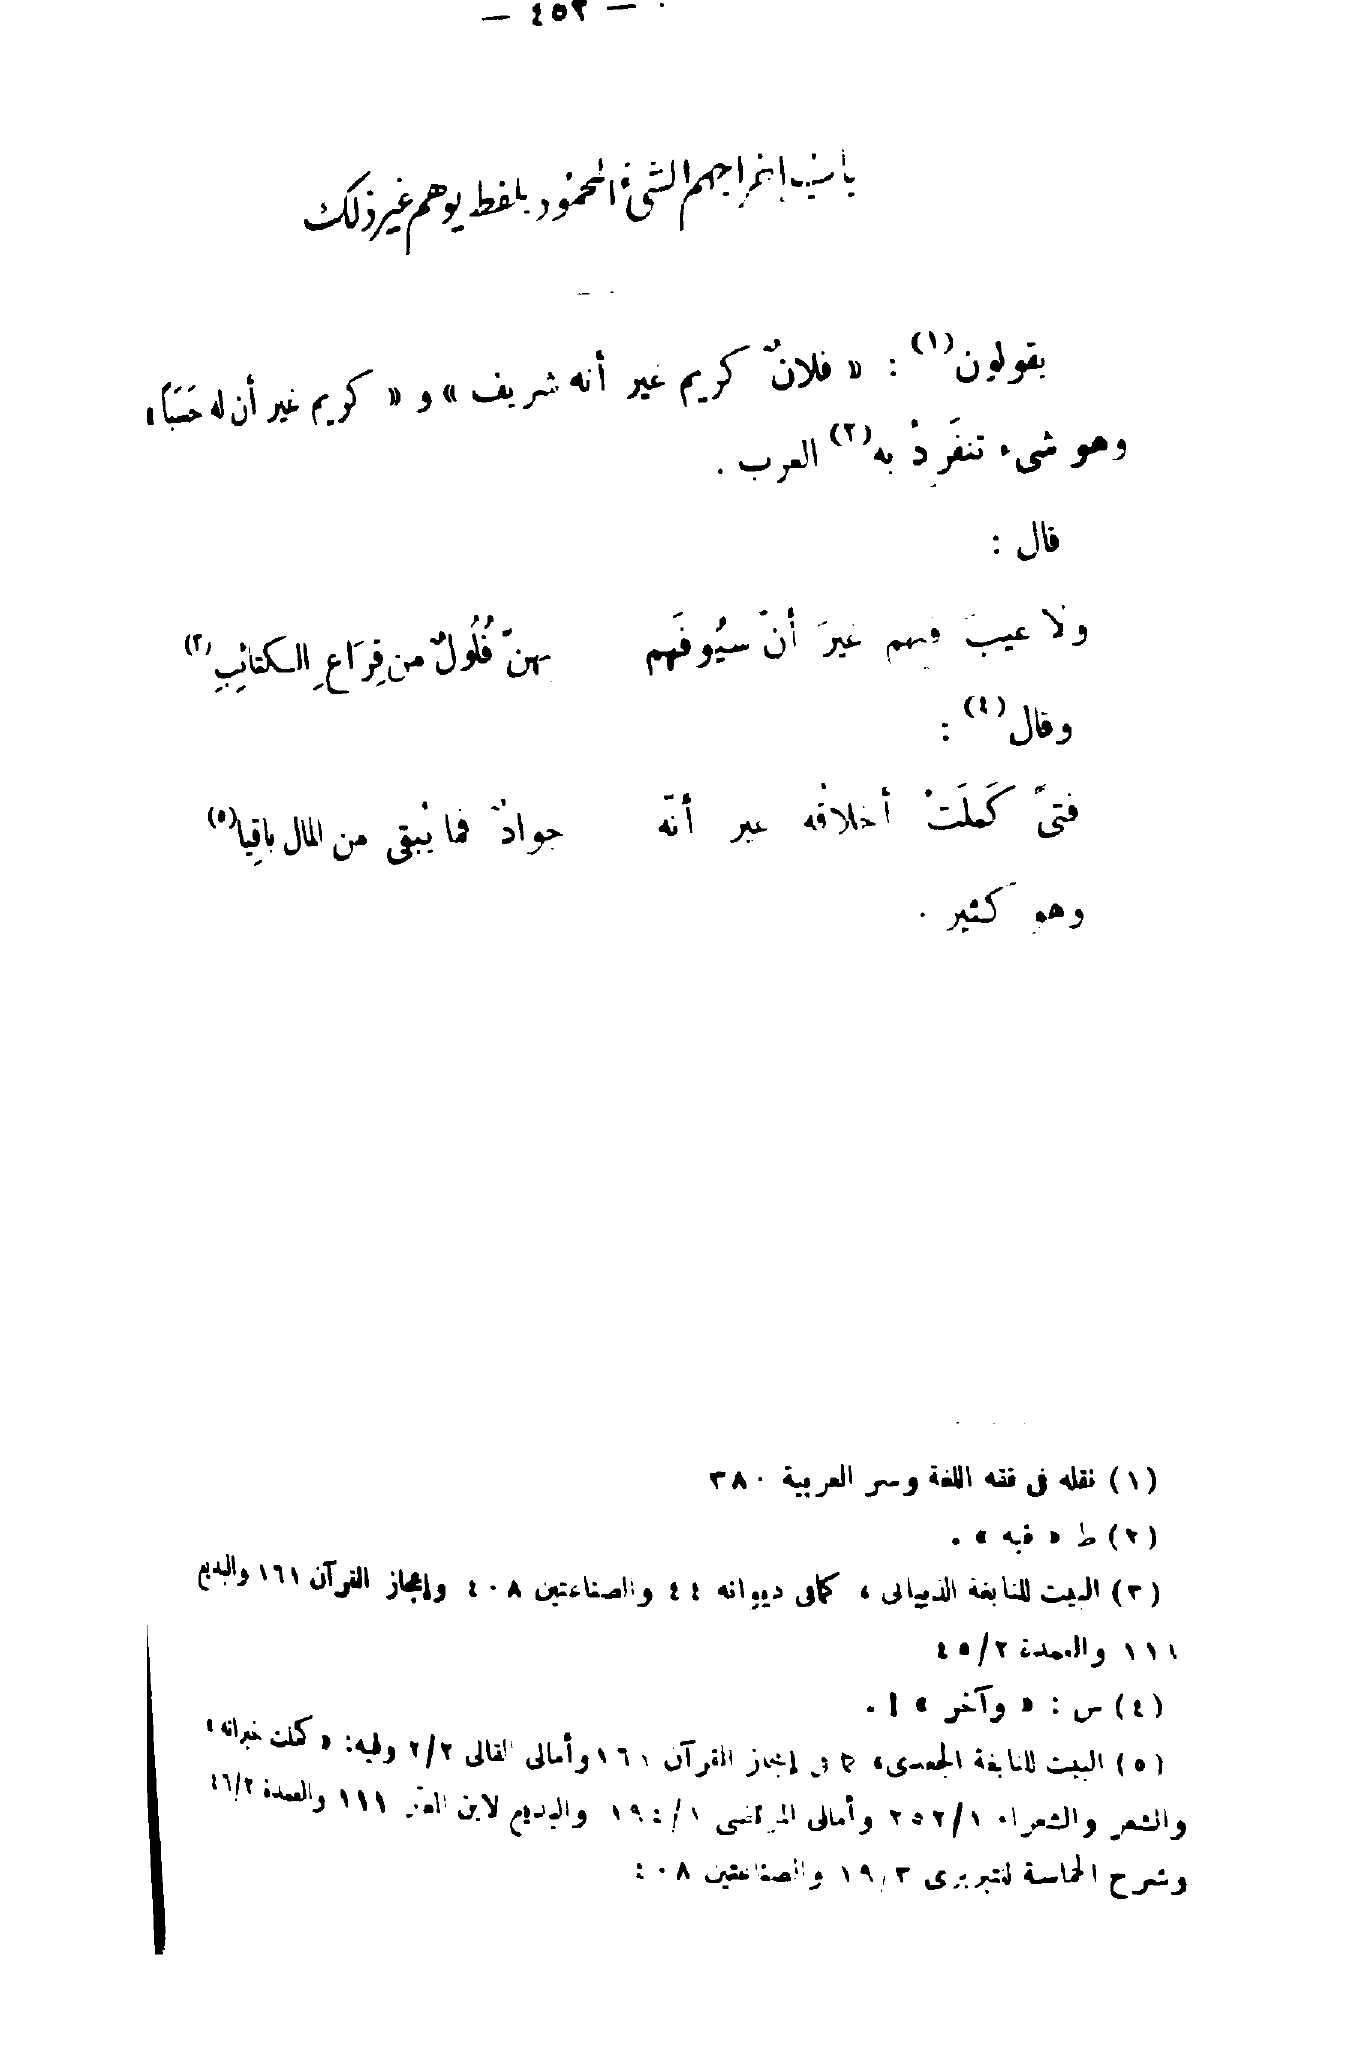 — ٤٥٢ —
باب إخراجهم الشيءَ المحمُود بلفظ يوهم غير ذلك
يقولون(١) : « فلانٌ كريم غير أنه شريف » و « كريم غير أن له حَسَبًا »
وهو شىء تنفَردُ به(٢) العرب .
قال :
ولا عيبَ فيهم غيرَ أنّ سيُوفَهم بهنّ فُلُولٌ من قِرَاعِ الكتائِبِ(٣)
وقال(٤) :
فتىً كَملَتْ أخلاقُه غير أنّه جوادٌ فما يُبقى من المال باقِيا(٥)
وهو كثير .
(١) نقله فى فقه اللغة وسر العربية ٣٨٠
(٢) ط « فيه » .
(٣) البيت للنابغة الذبيانى ، كما فى ديوانه ٤٤ والصناعتين ٤٠٨ وإعجاز القرآن ١٦١ والبديع
١١١ والعمدة ٤٥/٢
(٤) س : « وآخر » .
(٥) البيت للنابغة الجعدى، كما فى إعجاز القرآن ١٦١ وأمالى القالى ٢/٢ وفيه: « كملت خيراته »
والشعر والشعراء ٢٥٢/١ وأمالى المرتضى ١٩٤/١ والبديع لابن المعتز ١١١ والعمدة ٤٦/٢
وشرح الحماسة للتبريزى ١٩/٣ والصناعتين ٤٠٨